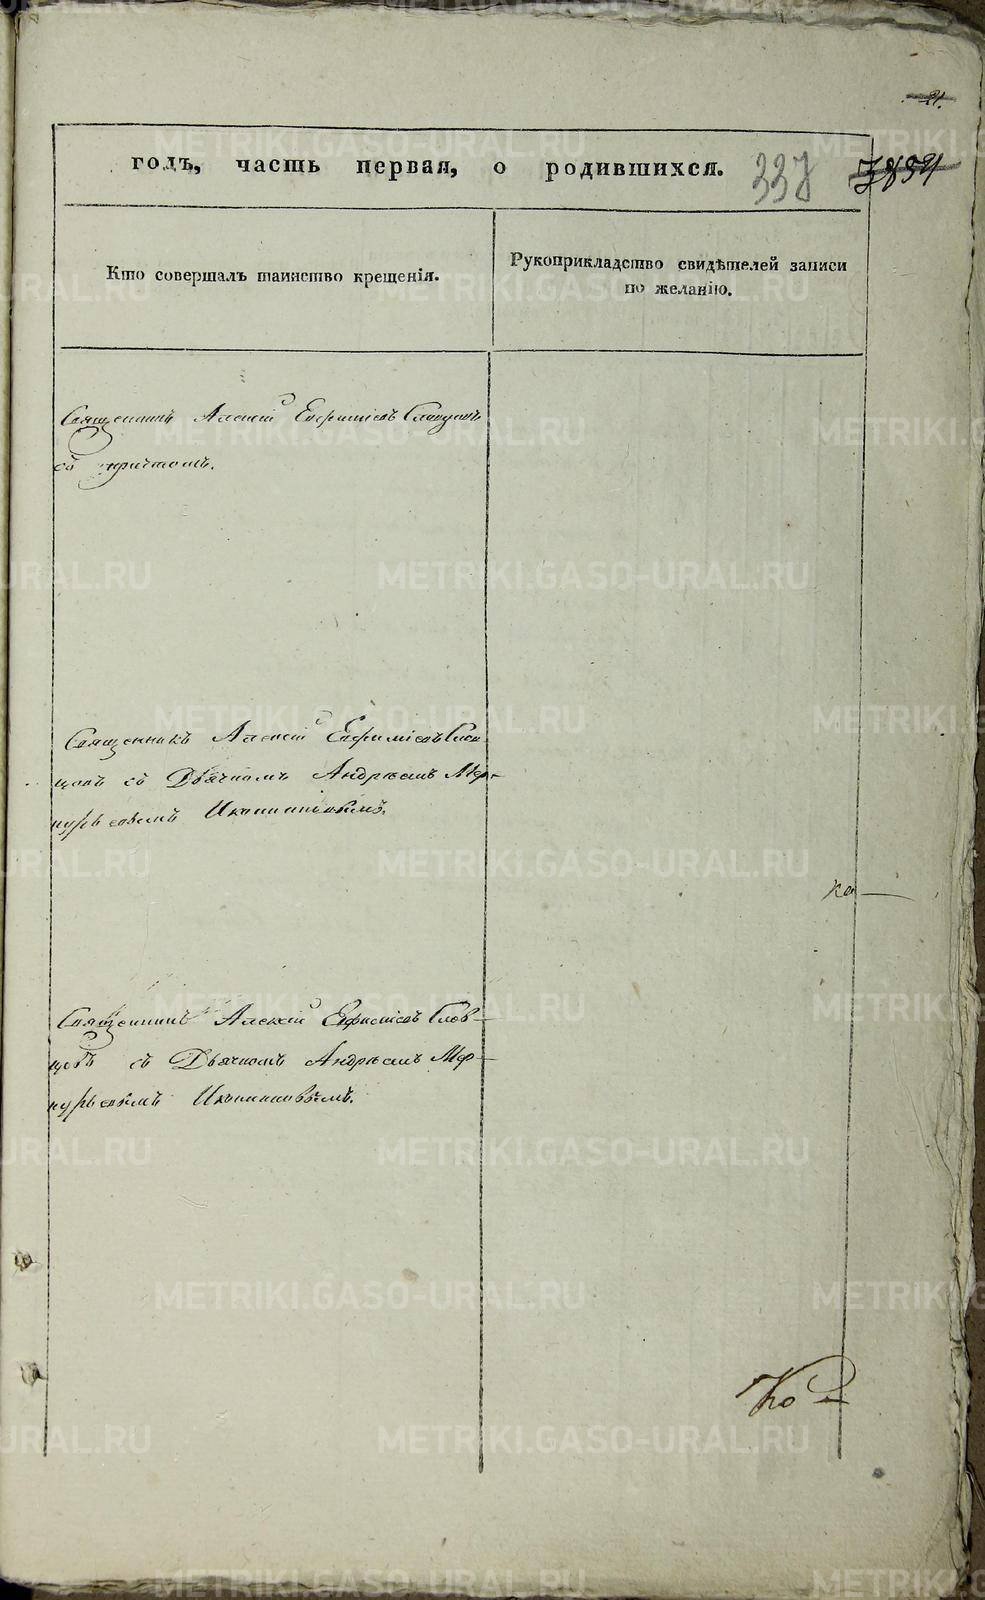 годъ, часть первая, о родившихся.
337
Кто совершалъ таинство крещенія.
Рукоприкладство свидѣтелей записи
по желанію.
Священникъ Алексій Евфиміевъ Словцовъ
съ причтомъ.
Священникъ Алексій Евфиміевъ Слов-
цовъ съ Дьячкомъ Андреемъ Мер-
курьевымъ Иконниковымъ.
Священникъ Алексій Евфиміевъ Слов-
цовъ съ Дьячкомъ Андреемъ Мер-
курьевымъ Иконниковымъ.
METRIKI.GASO-URAL.RU